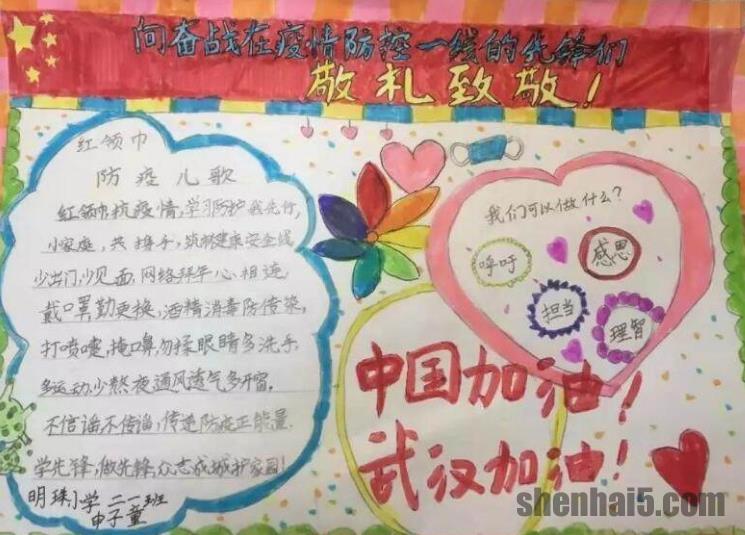 向奋战在疫情防控一线的先锋们
敬礼致敬！
红领巾
防疫儿歌
红领巾抗疫情,学习防护我先行,
小家庭,共携手,筑牢健康安全线
少出门,少见面,网络拜年心相连
戴口罩,勤更换,酒精消毒防传染,
打喷嚏,掩口鼻,勿揉眼睛多洗手,
多运动,少熬夜通风透气多开窗,
不信谣不传谣,传递防疫正能量
学先锋,做先锋,众志成城护家园!
明珠小学 二一班
申子童
我们可以做什么?
呼吁
感恩
担当
理智
中国加油!
武汉加油!
shenhai5.com